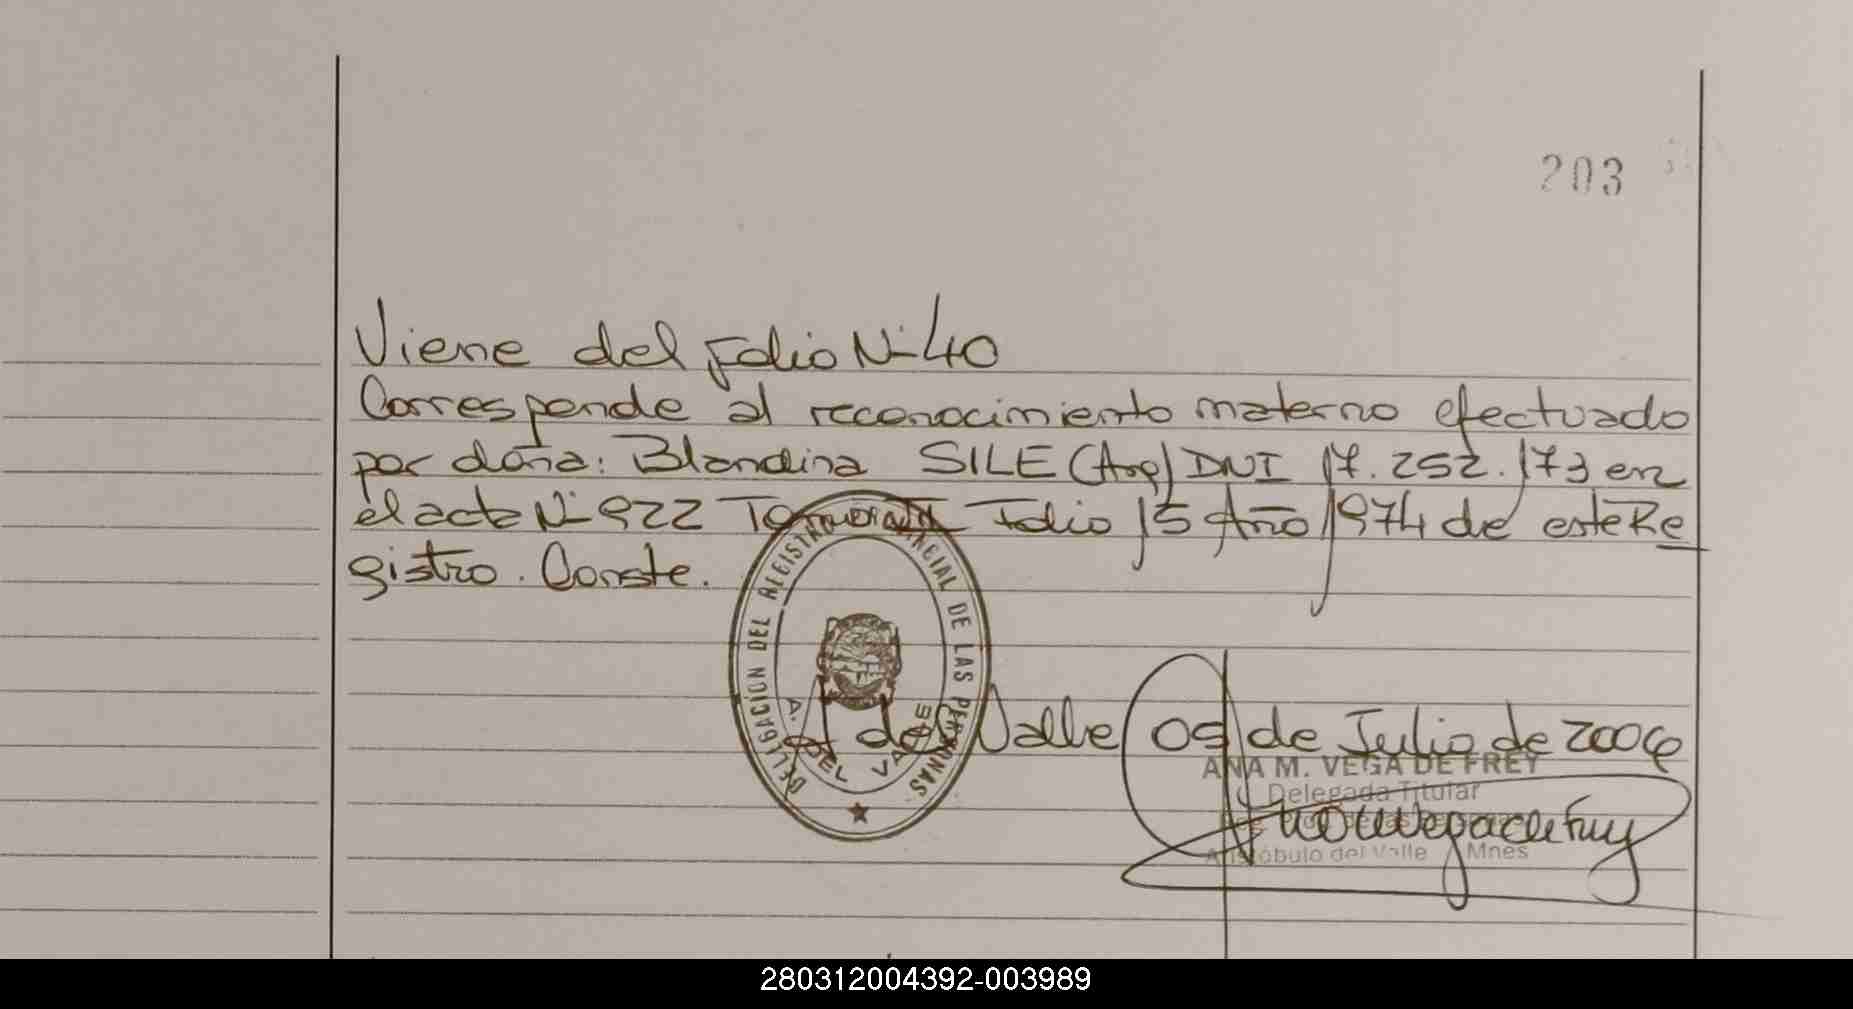 203
Viene del Folio Nº 40
Corresponde al reconocimiento materno efectuado
por doña: Blandina SILE (Arg) DNI 17.252.173 en
el acta Nº 922 Folio 15 Año 1974 de este Re
gistro. Conste.
DELEGACION DEL REGISTRO PROVINCIAL DE LAS PERSONAS
A. DEL VALLE
del Valle 05 de Julio de 2006
ANA M. VEGA DE FREY
Delegada Titular
Aristóbulo del Valle Mnes
280312004392-003989